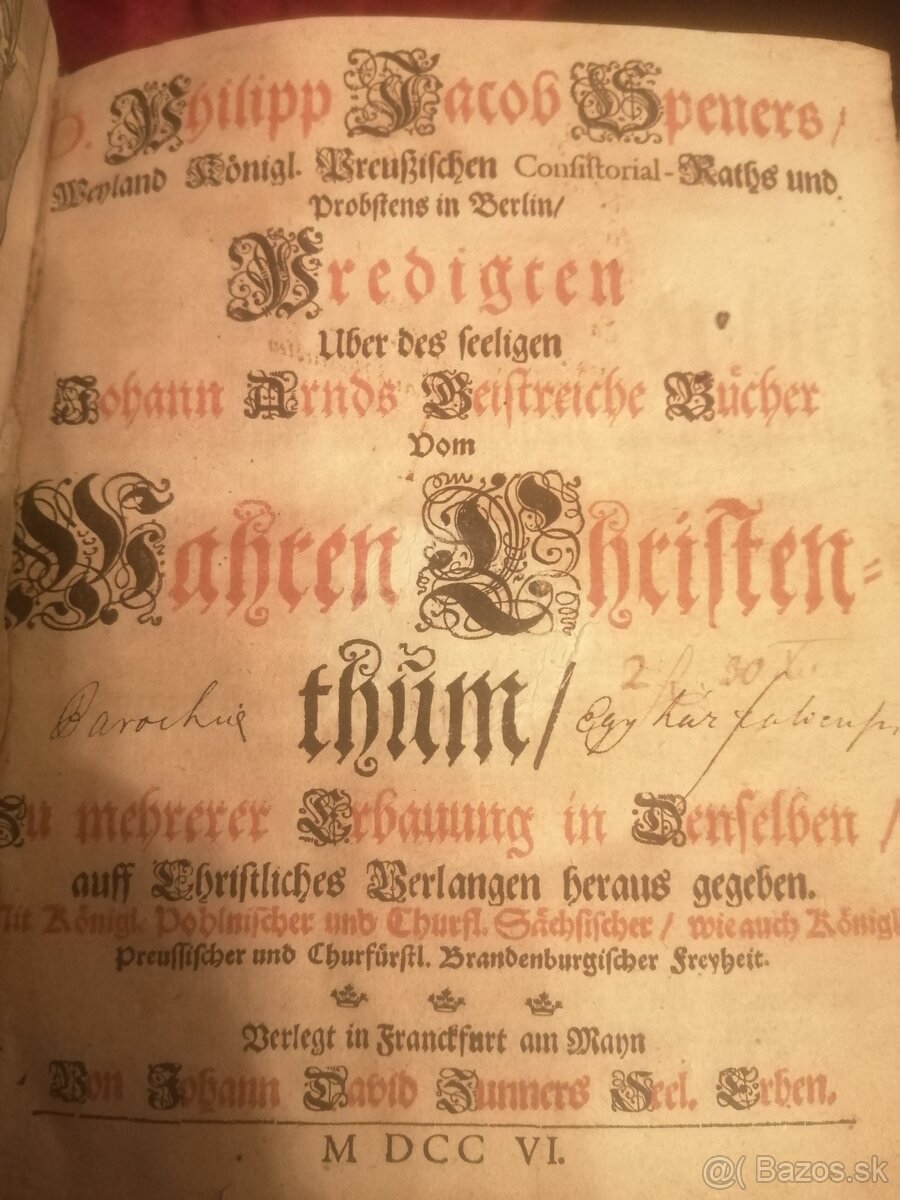 D. Philipp Jacob Speners/
Weyland Königl. Preußischen Consistorial-Raths und
Probstens in Berlin/
Predigten
Uber des seeligen
Johann Arnds Geistreiche Bücher
Vom
Wahren Christen-
thům/
2 f. 30 X.
Parochiæ
Zu mehrerer Erbauung in Denselben/
auff Christliches Verlangen heraus gegeben.
Mit Königl. Pohlnischer und Churfl. Sächsischer/ wie auch Königl.
Preussischer und Churfürstl. Brandenburgischer Freyheit.
Verlegt in Franckfurt am Mayn
Von Johann David Zunners Seel. Erben.
M DCC VI.
@( Bazos.sk